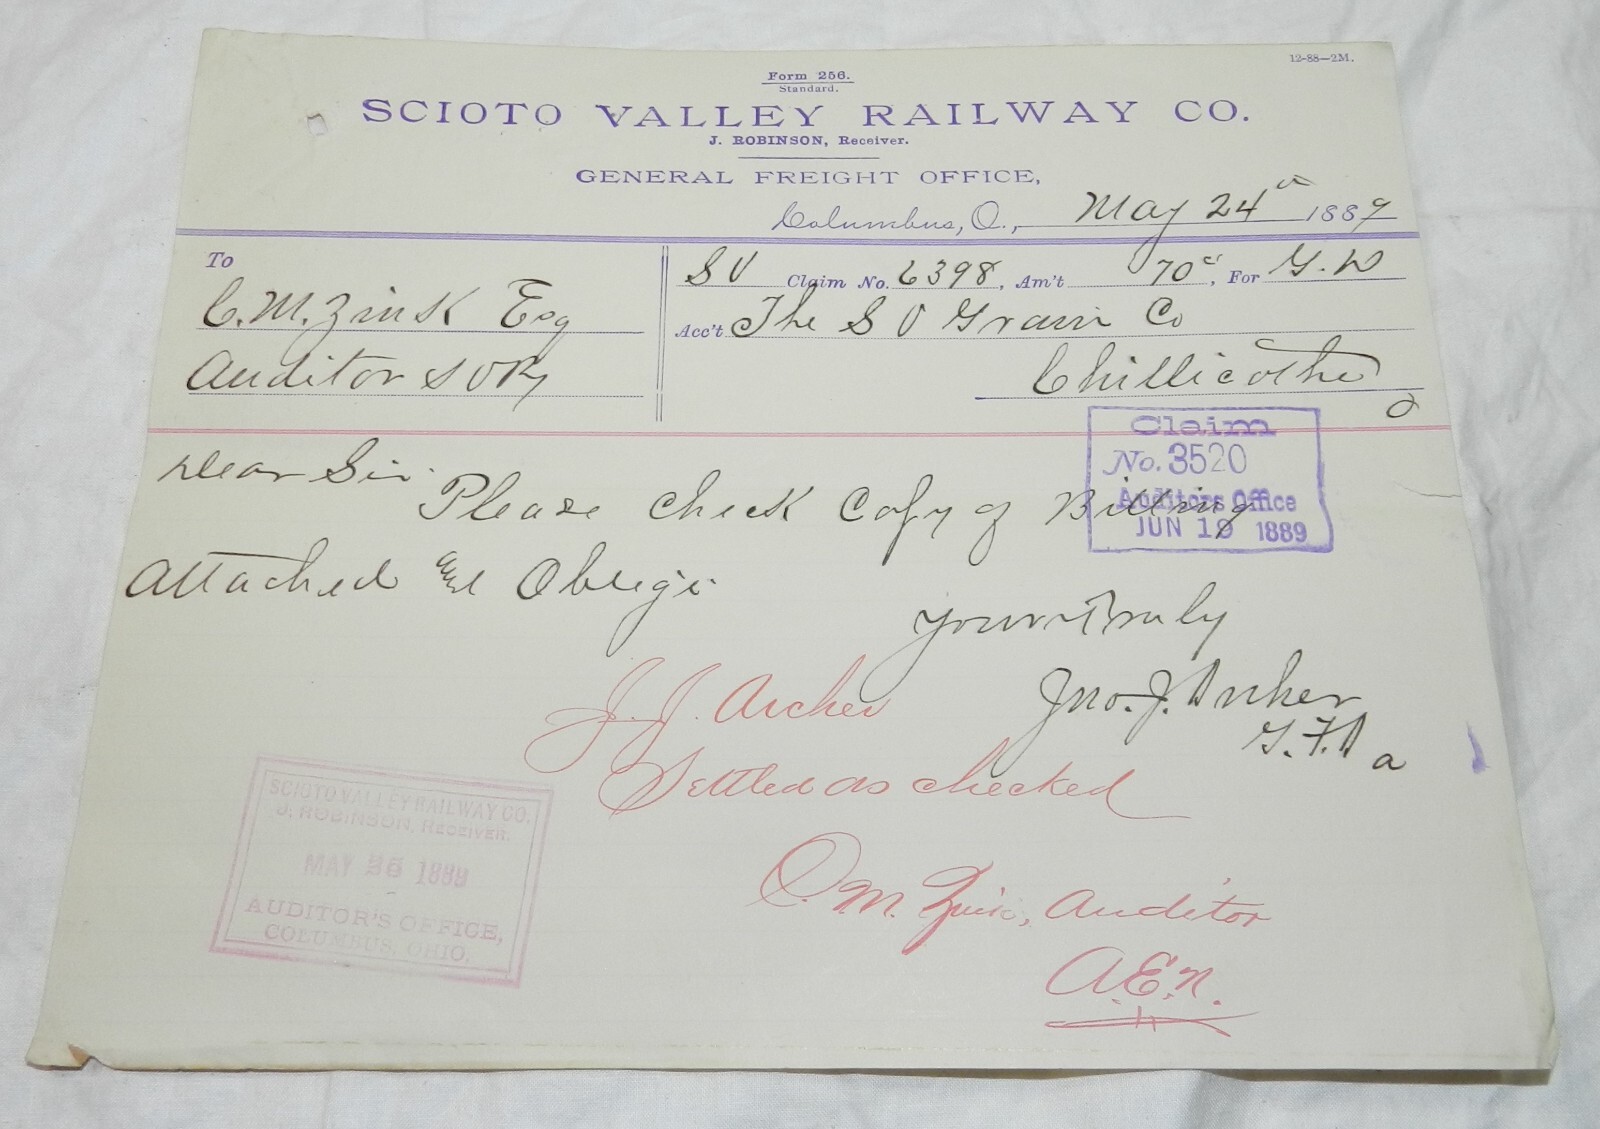 12-88—2M.
Form 256.
Standard.
SCIOTO VALLEY RAILWAY CO.
J. ROBINSON, Receiver.
GENERAL FREIGHT OFFICE,
Columbus, O., May 24th 1889
To
C. M. Zink Esq
Auditor S V Ry
S V Claim No. 6398, Am't 70cs, For G. W
Acc't The S V Grain Co
Chillicothe
O
Claim
No. 3520
Auditors Office
JUN 19 1889
Dear Sir
Please Check Copy of Billing
Attached & Oblige
Yours Truly
Jno. J. Archer
G. F. A
a
J. J. Archer
Settled as checked
C. M. Zink, Auditor
A.E.N.
SCIOTO VALLEY RAILWAY CO.
J. ROBINSON, RECEIVER.
MAY 1889
AUDITOR'S OFFICE,
COLUMBUS, OHIO.